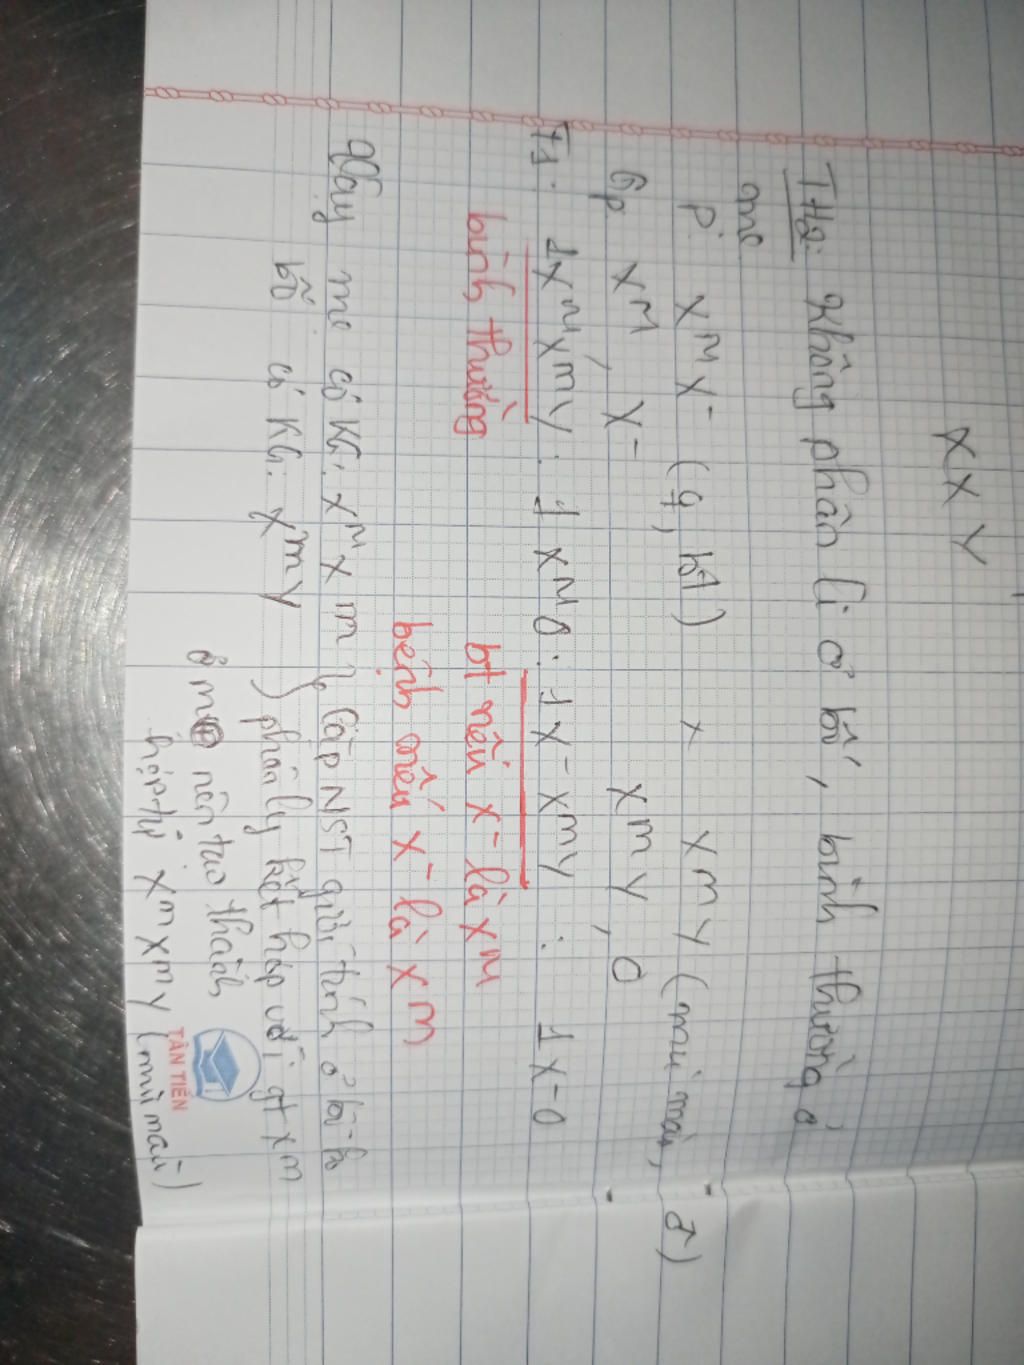 XXY
TH2: Không phân li ở bố, bình thường ở
mẹ
P: X^M X^- (♀, bt) x X^m Y (mù màu, ♂)
Gp X^M, X^- X^m Y, O
F1: 1X^M X^m Y : 1 X^M O : 1X^- X^m Y : 1X^- O
bình thường bt nếu X^- là X^M
bệnh nếu X^- là X^m
Vậy mẹ có KG: X^M X^m } cặp NST giới tính ở
bố có KG: X^m Y } phân ly kết hợp với gt X^m
ở mẹ nên tạo thành
hợp tử X^m X^m Y (mù màu)
TÂN TIẾN